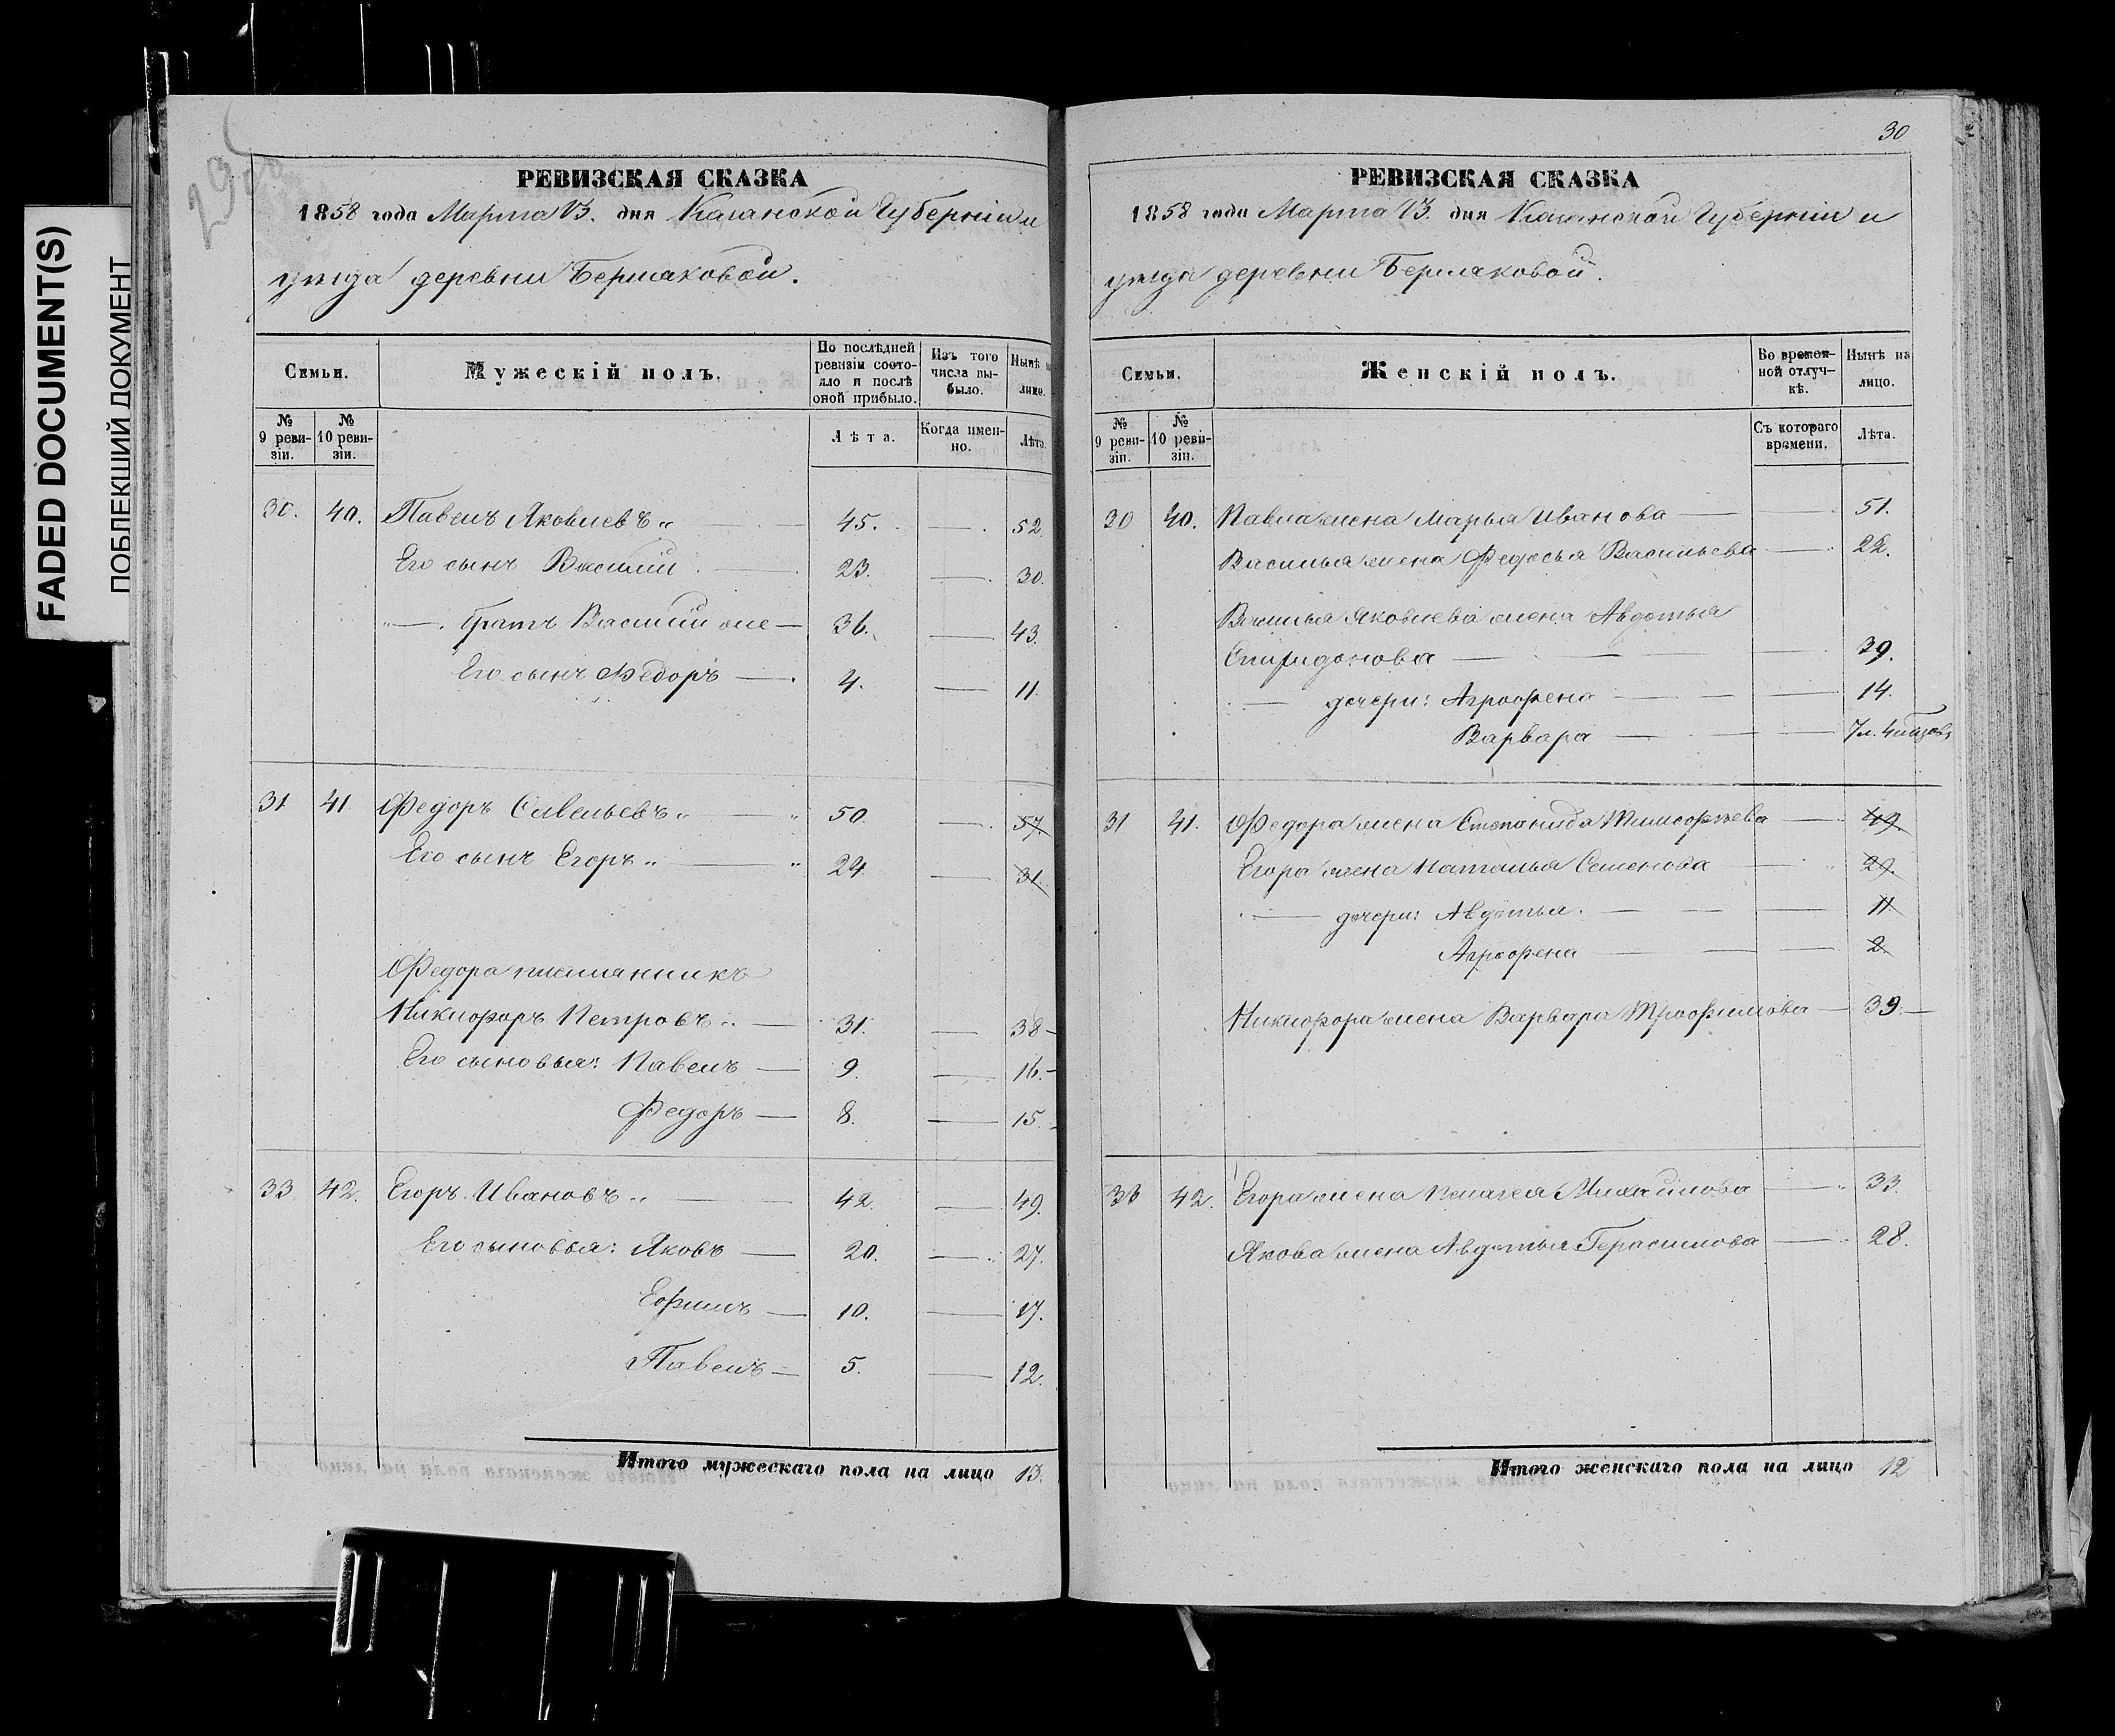 FADED DOCUMENT(S)
ПОБЛЕКШИЙ ДОКУМЕНТ
РЕВИЗСКАЯ СКАЗКА
1858 года Марта 13. дня Казанской Губерніи и
уѣзда деревни Бермаковой.
Семьи. Мужескій полъ. По послѣдней ревизіи состояло и послѣ оной прибыло. Изъ того числа выбыло. Нынѣ на лицо.
№ 9 ревизіи. № 10 ревизіи. Лѣта. Когда именно. Лѣта.
30. 40. Павелъ Яковлевъ 45. 52.
Его сынъ Василій 23. 30.
братъ Василій же 36. 43.
Его сынъ Федоръ 4. 11.
31 41 Федоръ Савельевъ 50. 57
Его сынъ Егоръ 24. 31.
Федора племянникъ
Никифоръ Петровъ 31. 38
Его сыновья: Павелъ 9. 16.
Федоръ 8. 15.
33 42. Егоръ Ивановъ 42. 49.
Его сыновья: Яковъ 20. 27.
Ефимъ 10. 17.
Павелъ 5. 12.
Итого мужескаго пола на лицо 13.
30
РЕВИЗСКАЯ СКАЗКА
1858 года Марта 13. дня Казанской Губерніи и
уѣзда деревни Бермаковой.
Семьи. Женскій полъ. Во временной отлучкѣ. Нынѣ на лицо.
№ 9 ревизіи. № 10 ревизіи. Съ котораго времени. Лѣта.
30 40. Павла жена Марья Иванова 51.
Василья жена Федосья Васильева 22.
Василья Яковлева жена Авдотья
Спиридонова 39.
дочери: Агрофена 14.
Варвара 7 л.
31 41. Федора жена Степанида Тимофѣева 49.
Егора жена Наталья Семенова 29.
дочери: Авдотья. 11
Агрофена 2.
Никифора жена Варвара Трофимова 39.
33 42. Егора жена Пелагея Михайлова 33.
Якова жена Авдотья Герасимова 28.
Итого женскаго пола на лицо 12